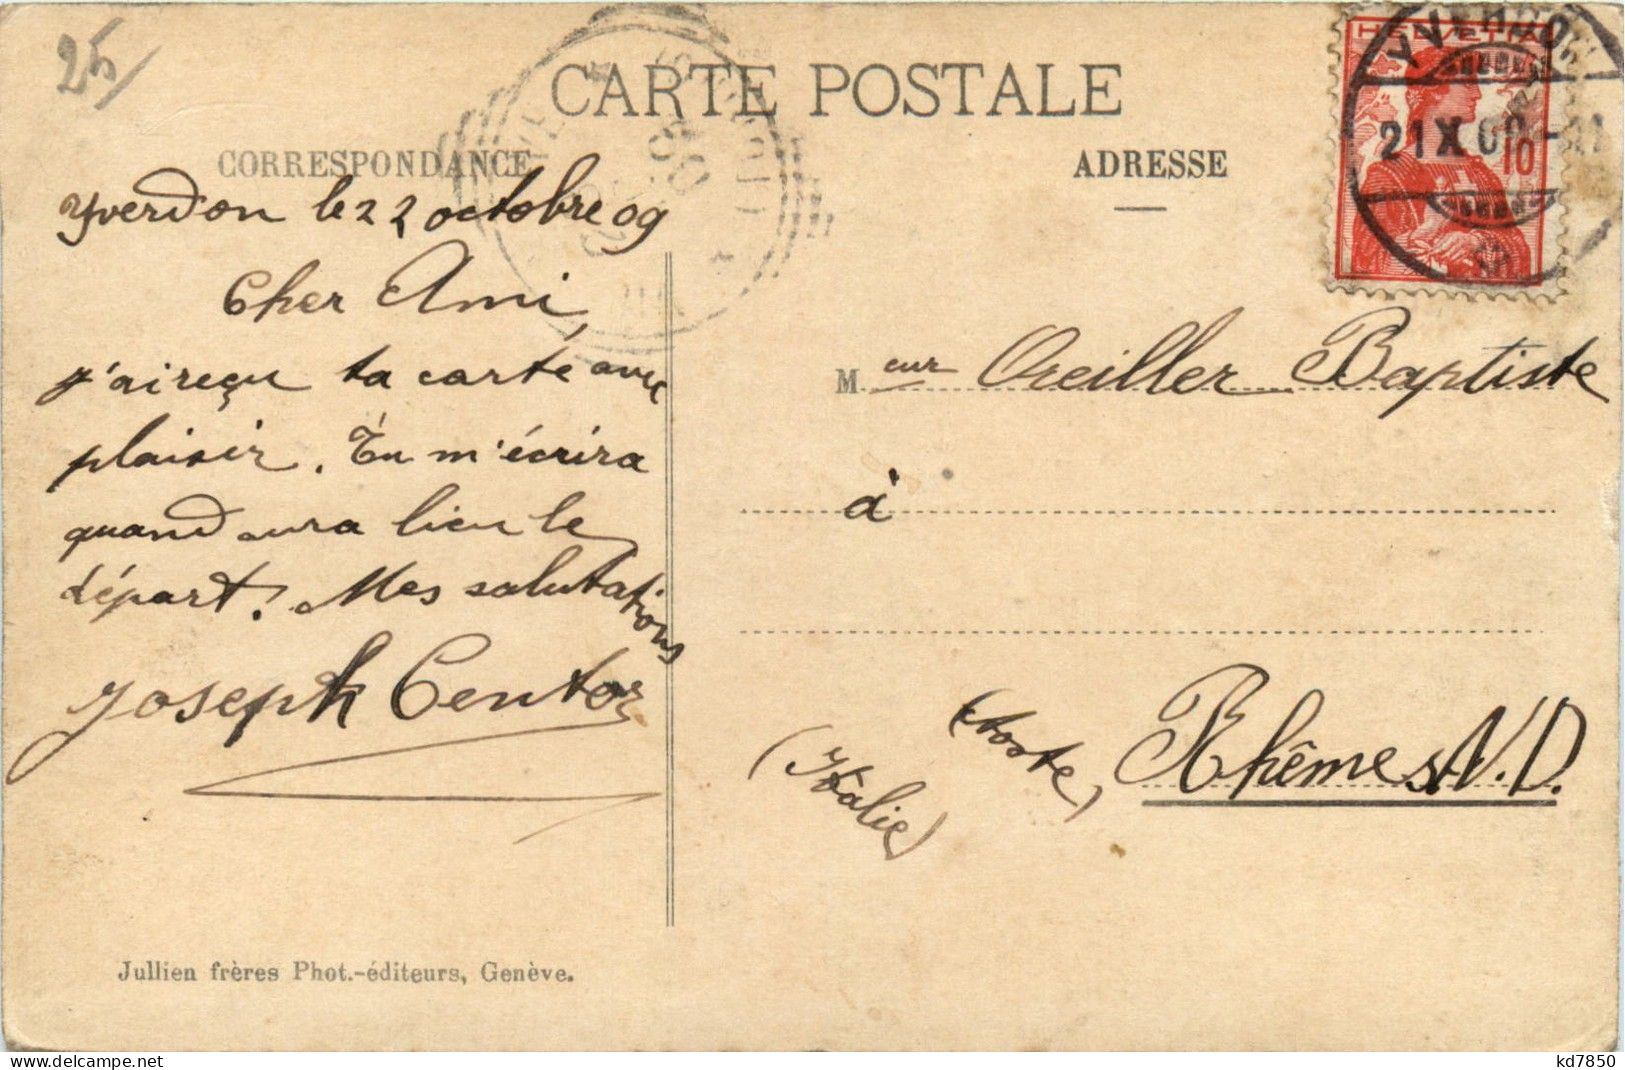 25
CARTE POSTALE
CORRESPONDANCE
ADRESSE
HELVETIA
10
YVERDON
21 X 09
Yverdon le 22 octobre 09
Cher Ami,
j'ai reçu ta carte avec
plaisir. Tu m'écrira
quand aura lieu le
départ. Mes salutations
Joseph Centoz
Meur Oreiller Baptiste
à
Rhêmes N. D.
(Aoste)
(Itâlie)
Jullien frères Phot.-éditeurs, Genève.
kd7850